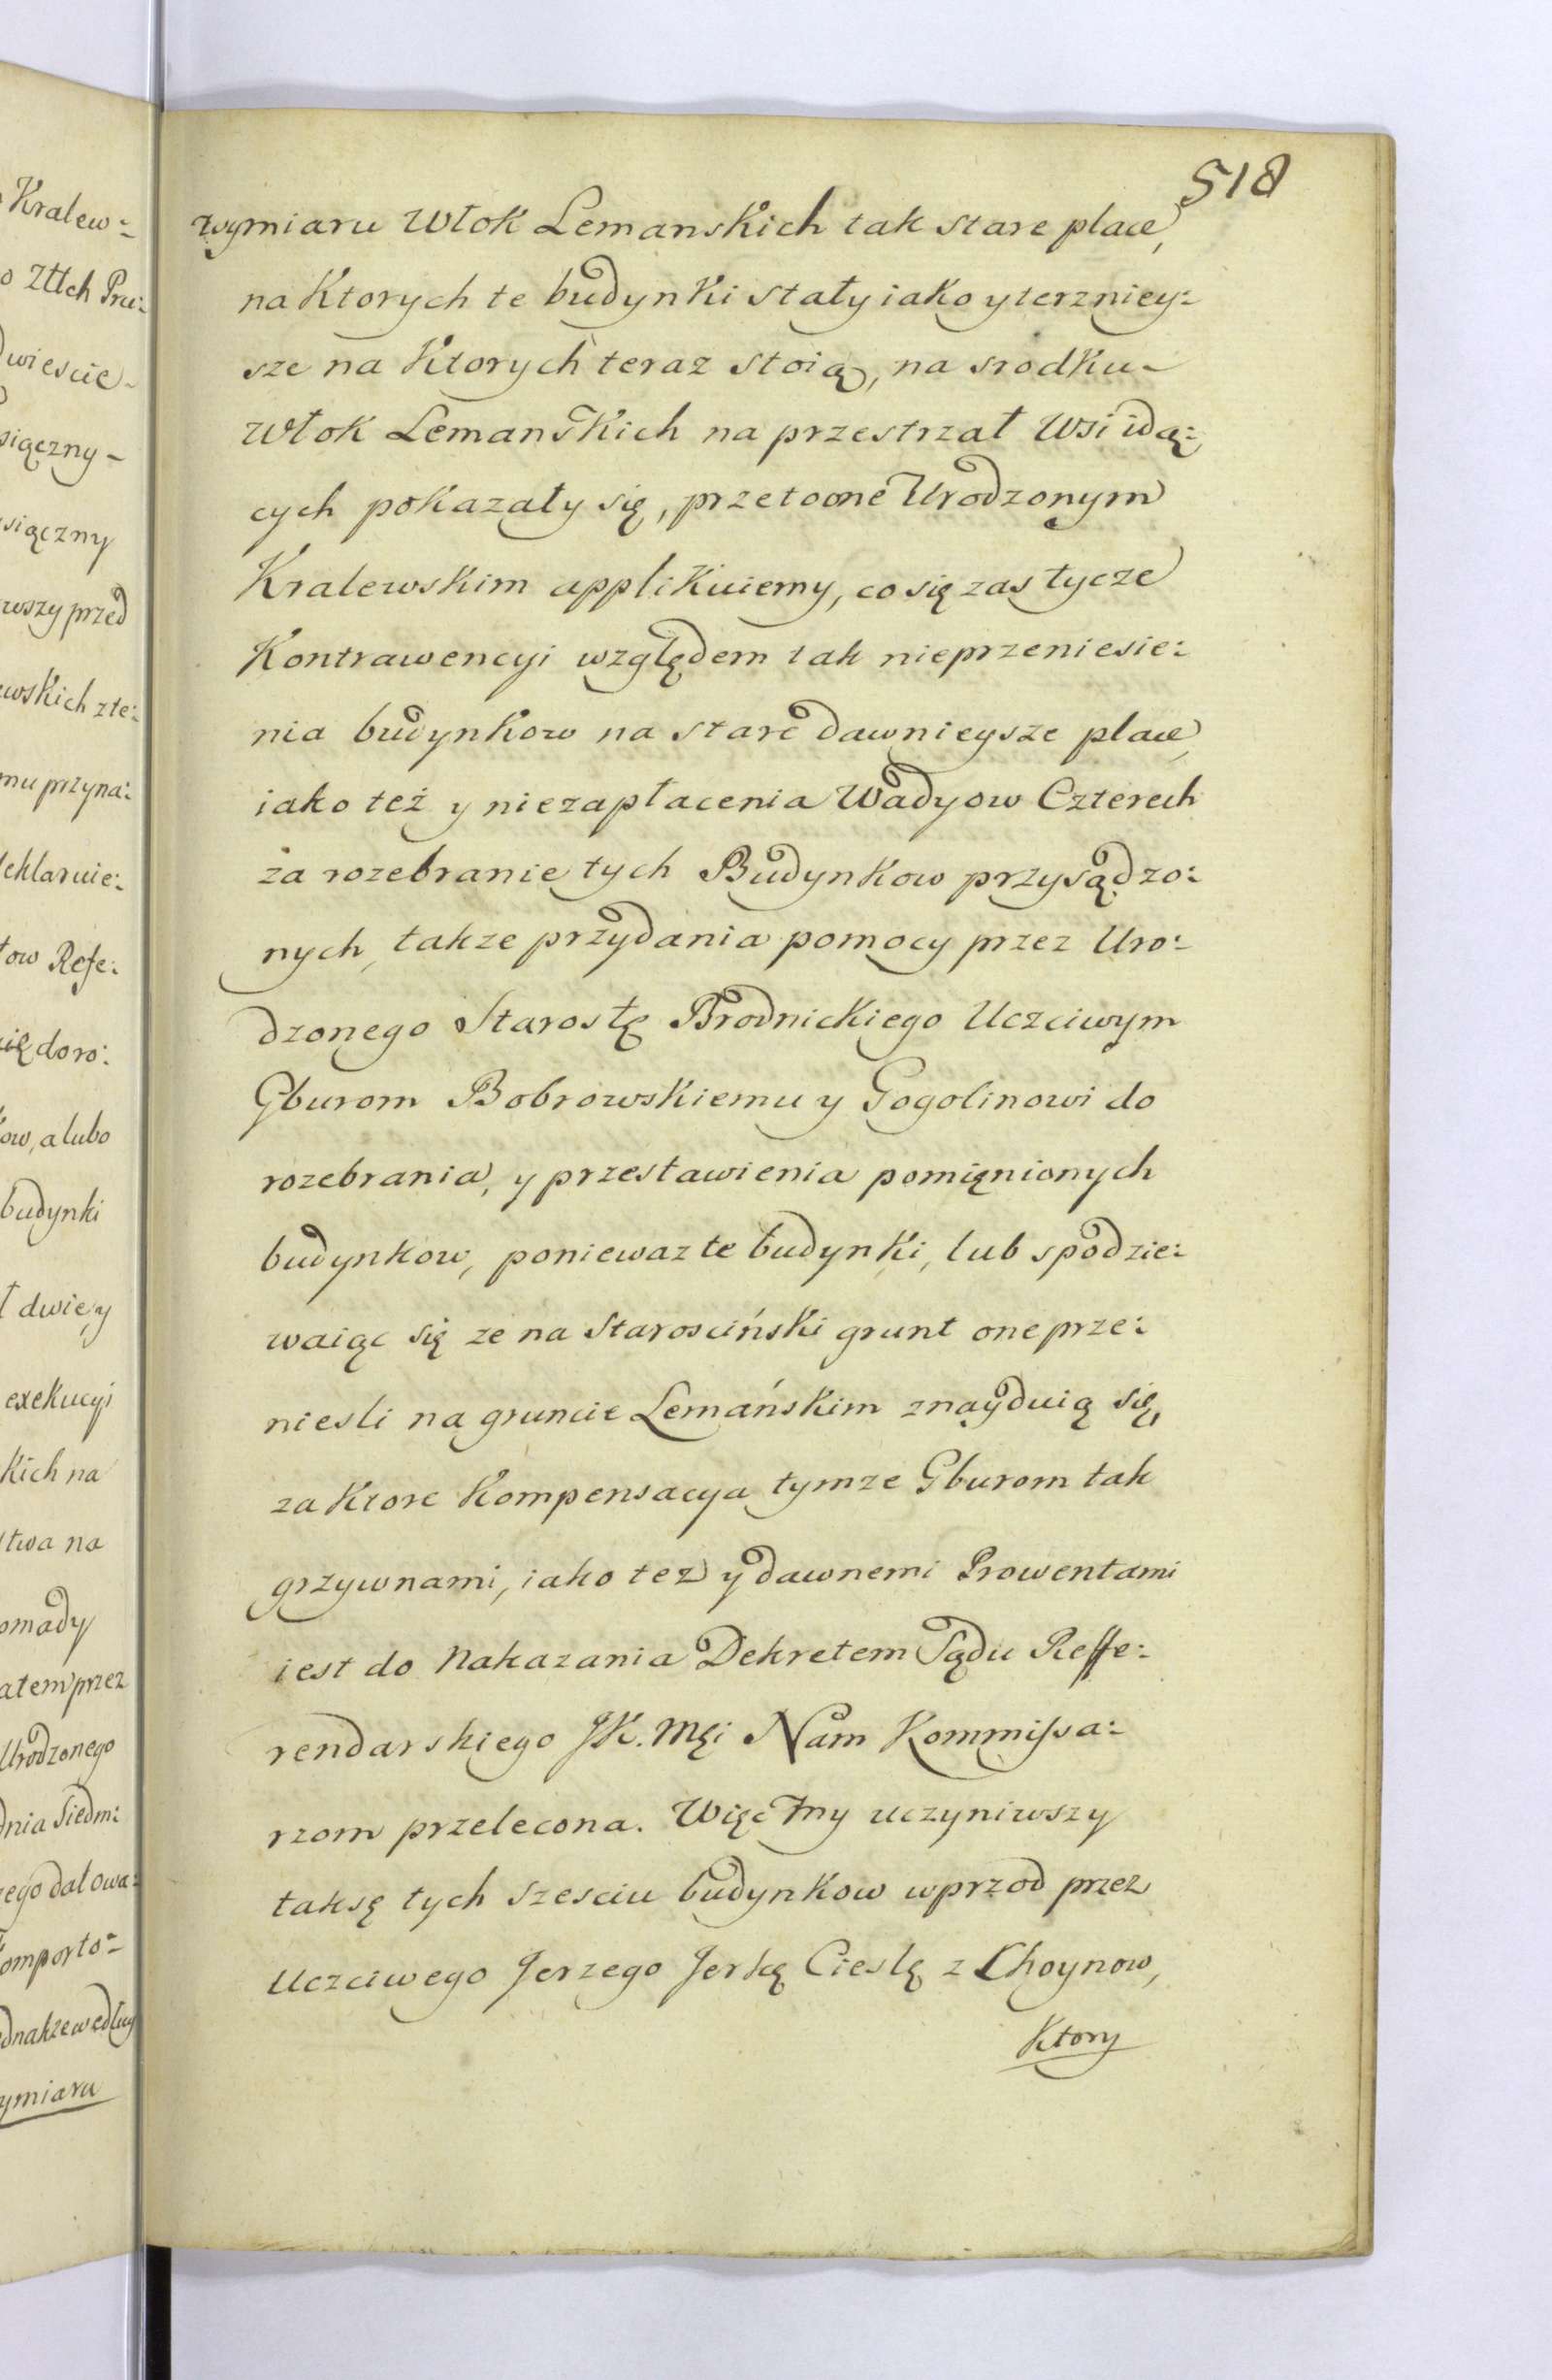 Kralew:
o Ztłch Pru:
wiescie
siączny
wszy przed
wskich zte:
mu przyna:
ow Refe:
się doro:
ow, a lubo
budynki
dwie, y
exekucyi
kich na
twa na
omady
atem przez
Urodzonego
dnia Siedm:
ego datowa:
omporto:
dnakze wedlug
ymiaru
518
wymiaru Włok Lemanskich tak stare place,
na Ktorych te budynki stały iako y terzniey:
sze na Ktorych teraz stoią, na srodku
Włok Lemanskich na przestrzał Wsi idą:
cych pokazały się, przeto one Urodzonym
Kralewskim applikuiemy, co się zas tycze
Kontrawencyi względem tak nieprzeniesie:
nia budynkow na stare dawnieysze place,
iako też y niezapłacenia Wadyow Czterech
za rozebranie tych Budynkow przysądzo:
nych, takze przydania pomocy przez Uro:
dzonego Starostę Brodnickiego Uczciwym
Gburom Bobrowskiemu y Gogolinowi do
rozebrania, y przestawienia pomięnionych
budynkow, poniewaz te budynki, lub spodzie:
waiąc się ze na Starosciński grunt one prze:
niesli na gruncie Lemańskim znayduią się,
za Ktore Kompensacya tymze Gburom tak
grzywnami, iako tez y dawnemi Prowentami
iest do Nakazania Dekretem Sądu Reffe:
rendarskiego JK. Mci Nam Kommissa:
rzom przelecona. Więc My uczyniwszy
taksę tych szesciu budynkow wprzod przez
Uczciwego Jerzego Jerkę Cieslę z Choynow,
Ktory